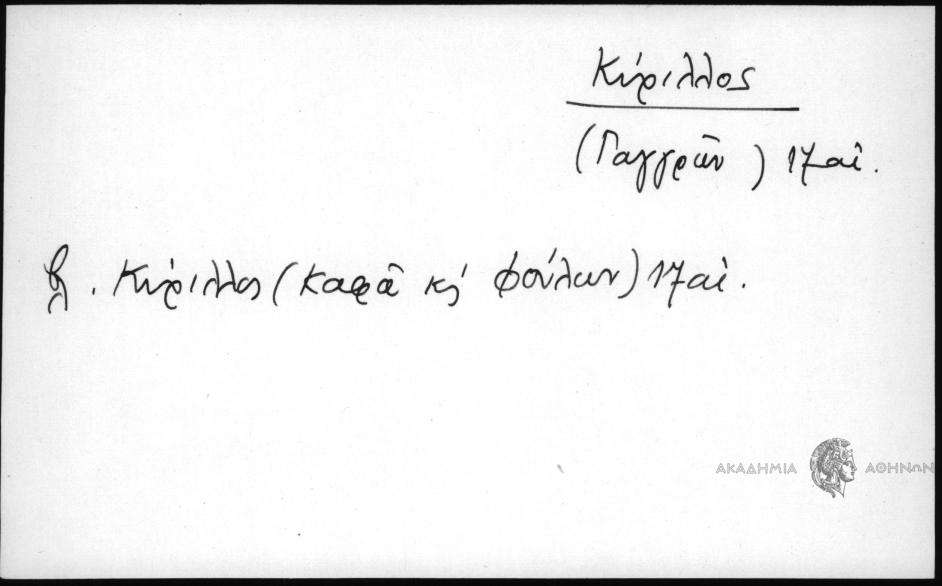 Κύριλλος
(Γαγγρῶν) 17 αἰ.
βλ. Κύριλλος (Καφᾶ κ' Φούλων) 17 αἰ.
ΑΚΑΔΗΜΙΑ ΑΘΗΝΩΝ